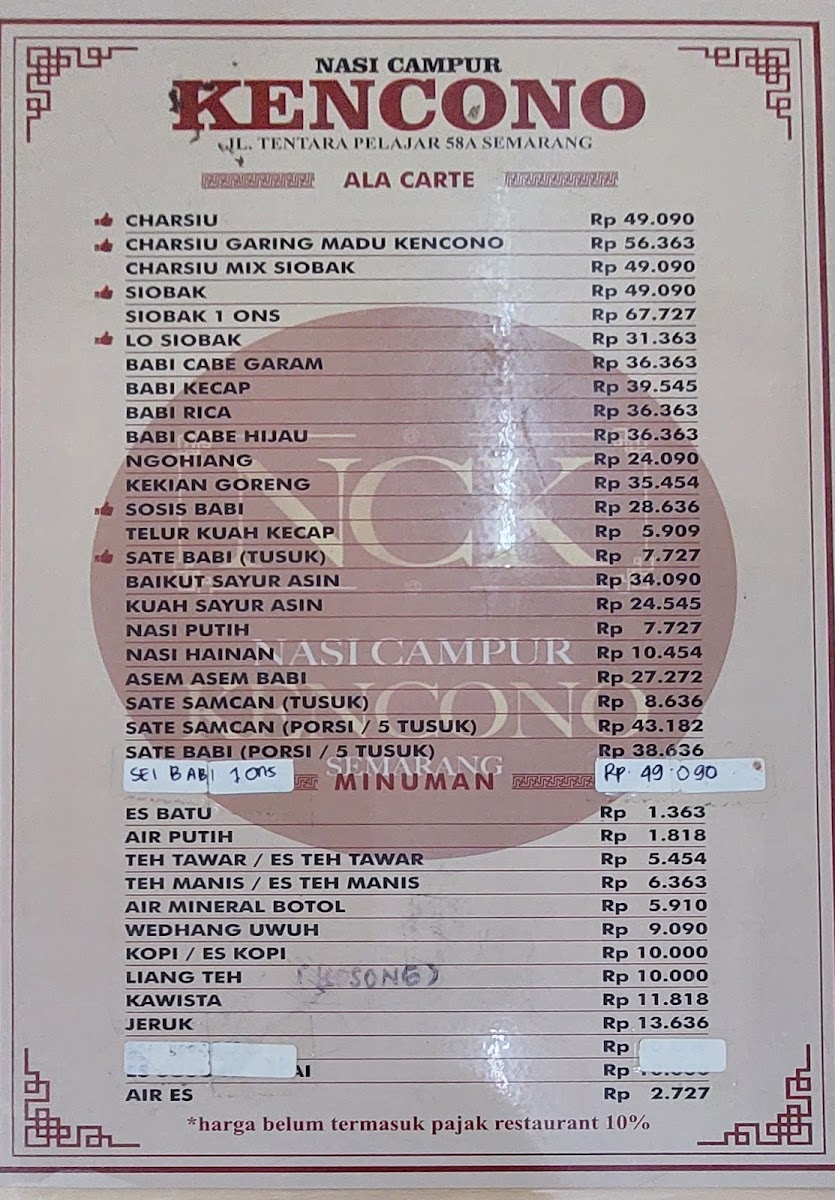 NASI CAMPUR
KENCONO
JL. TENTARA PELAJAR 58A SEMARANG
ALA CARTE
CHARSIU Rp 49.090
CHARSIU GARING MADU KENCONO Rp 56.363
CHARSIU MIX SIOBAK Rp 49.090
SIOBAK Rp 49.090
SIOBAK 1 ONS Rp 67.727
LO SIOBAK Rp 31.363
BABI CABE GARAM Rp 36.363
BABI KECAP Rp 39.545
BABI RICA Rp 36.363
BABI CABE HIJAU Rp 36.363
NGOHIANG Rp 24.090
KEKIAN GORENG Rp 35.454
SOSIS BABI Rp 28.636
TELUR KUAH KECAP Rp 5.909
SATE BABI (TUSUK) Rp 7.727
BAIKUT SAYUR ASIN Rp 34.090
KUAH SAYUR ASIN Rp 24.545
NASI PUTIH Rp 7.727
NASI HAINAN Rp 10.454
ASEM ASEM BABI Rp 27.272
SATE SAMCAN (TUSUK) Rp 8.636
SATE SAMCAN (PORSI / 5 TUSUK) Rp 43.182
SATE BABI (PORSI / 5 TUSUK) Rp 38.636
SEI BABI 1 ons Rp. 49.090
NCK
NASI CAMPUR
KENCONO
SEMARANG
MINUMAN
ES BATU Rp 1.363
AIR PUTIH Rp 1.818
TEH TAWAR / ES TEH TAWAR Rp 5.454
TEH MANIS / ES TEH MANIS Rp 6.363
AIR MINERAL BOTOL Rp 5.910
WEDHANG UWUH Rp 9.090
KOPI / ES KOPI Rp 10.000
LIANG TEH (KOSONG) Rp 10.000
KAWISTA Rp 11.818
JERUK Rp 13.636
Rp
Rp
AIR ES Rp 2.727
*harga belum termasuk pajak restaurant 10%